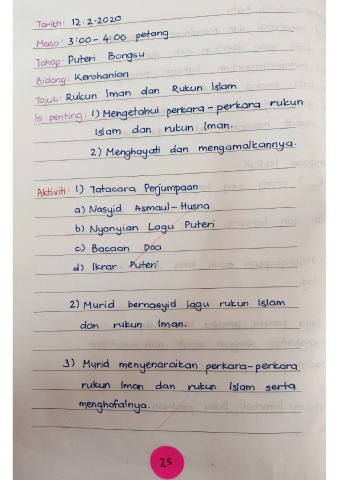 Tarikh: 12.2.2020
Masa: 3:00-4:00 petang
Tahap: Puteri Bongsu
Bidang: Kerohanian
Tajuk: Rukun Iman dan Rukun Islam
Isi penting: 1) Mengetahui perkara-perkara rukun
Islam dan rukun Iman.
2) Menghayati dan mengamalkannya.
Aktiviti: 1) Tatacara Perjumpaan
a) Nasyid Asmaul-Husna
b) Nyanyian Lagu Puteri
c) Bacaan Doa
d) Ikrar Puteri
2) Murid bernasyid lagu rukun Islam
dan rukun Iman.
3) Murid menyenaraikan perkara-perkara
rukun Iman dan rukun Islam serta
menghafalnya.
25